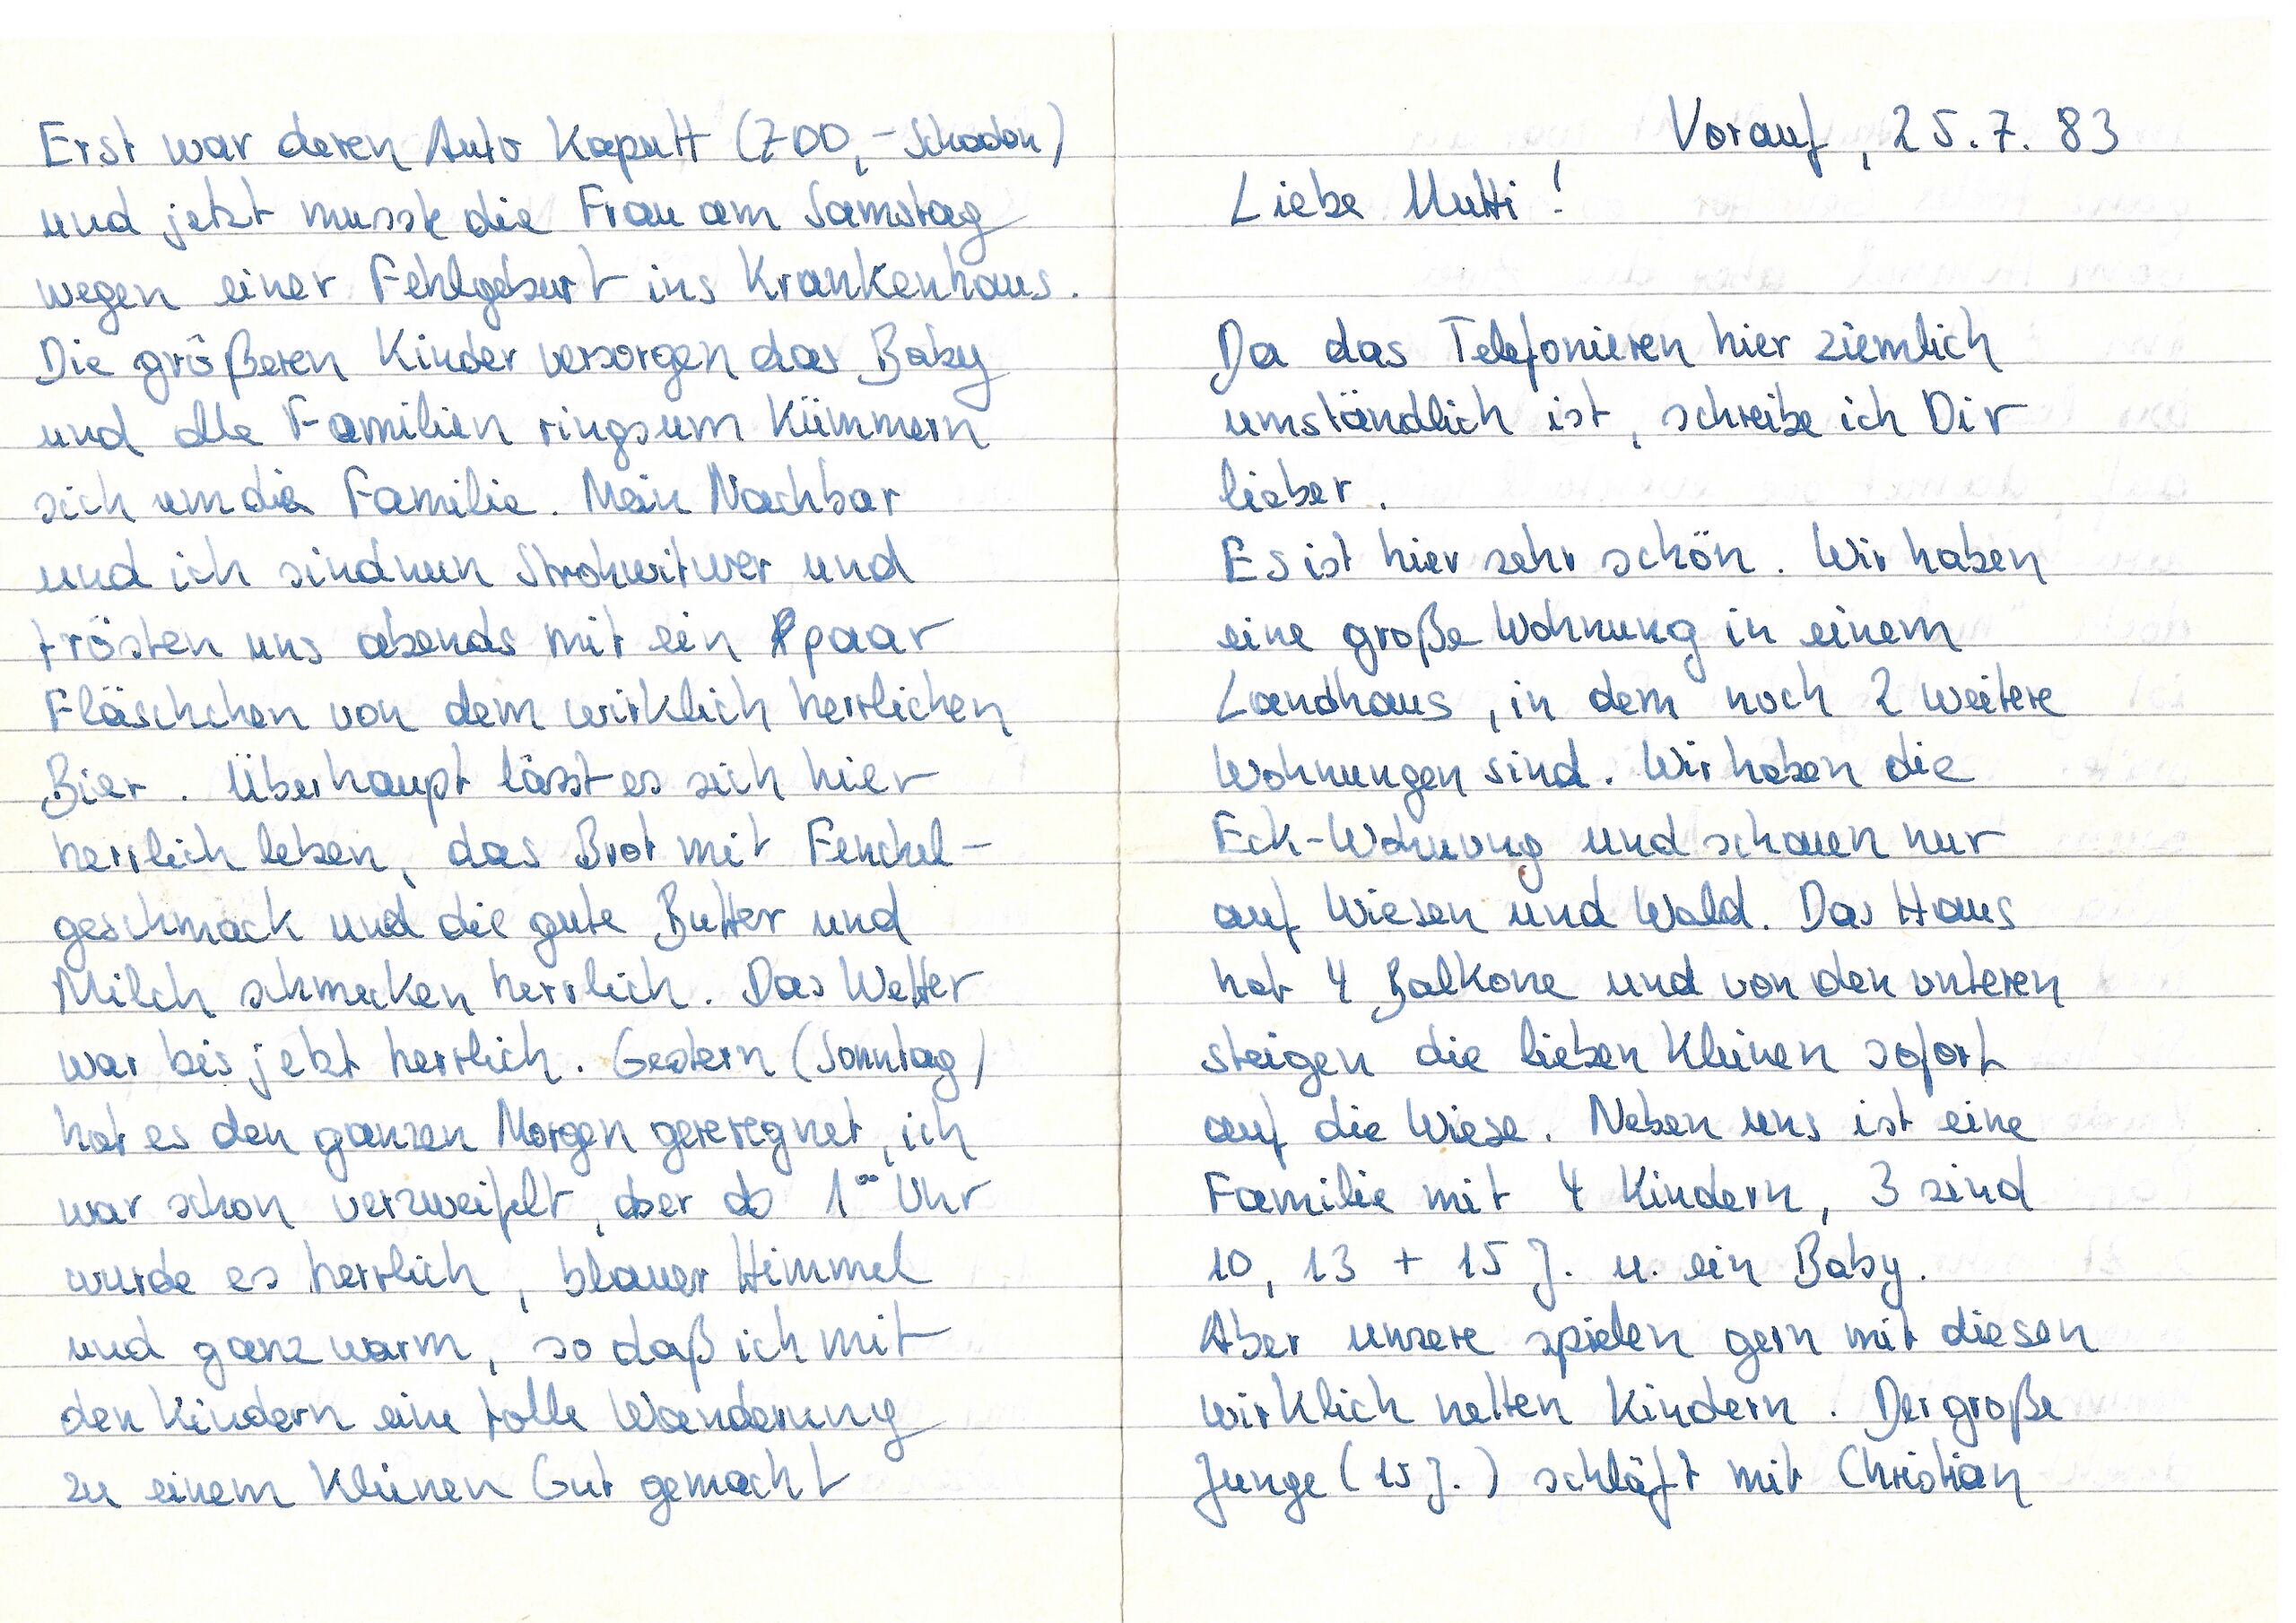 Vorauf, 25.7.83
Liebe Mutti!
Da das Telefonieren hier ziemlich
umständlich ist, schreibe ich Dir
lieber.
Es ist hier sehr schön. Wir haben
eine große Wohnung in einem
Landhaus, in dem noch 2 weitere
Wohnungen sind. Wir haben die
Eck-Wohnung und schauen nur
auf Wiesen und Wald. Das Haus
hat 4 Balkone und von den unteren
steigen die lieben Kleinen sofort
auf die Wiese. Neben uns ist eine
Familie mit 4 Kindern, 3 sind
10, 13 + 15 J. u. ein Baby.
Aber unsere spielen gern mit diesen
wirklich netten Kindern. Der große
Junge (15 J.) schläft mit Christian
Erst war deren Auto kaputt (700,- Schaden)
und jetzt musste die Frau am Samstag
wegen einer Fehlgeburt ins Krankenhaus.
Die größeren Kinder versorgen das Baby
und alle Familien ringsum kümmern
sich um die Familie. Mein Nachbar
und ich sind nun Strohwitwer und
trösten uns abends mit ein paar
Fläschchen von dem wirklich herrlichen
Bier. Überhaupt lässt es sich hier
herrlich leben, das Brot mit Fenchel-
geschmack und die gute Butter und
Milch schmecken herrlich. Das Wetter
war bis jetzt herrlich. Gestern (Sonntag)
hat es den ganzen Morgen gereregnet, ich
war schon verzweifelt, aber ab 1⁰⁰ Uhr
wurde es herrlich, blauer Himmel
und ganz warm, so daß ich mit
den Kindern eine tolle Wanderung
zu einem kleinen Gut gemacht